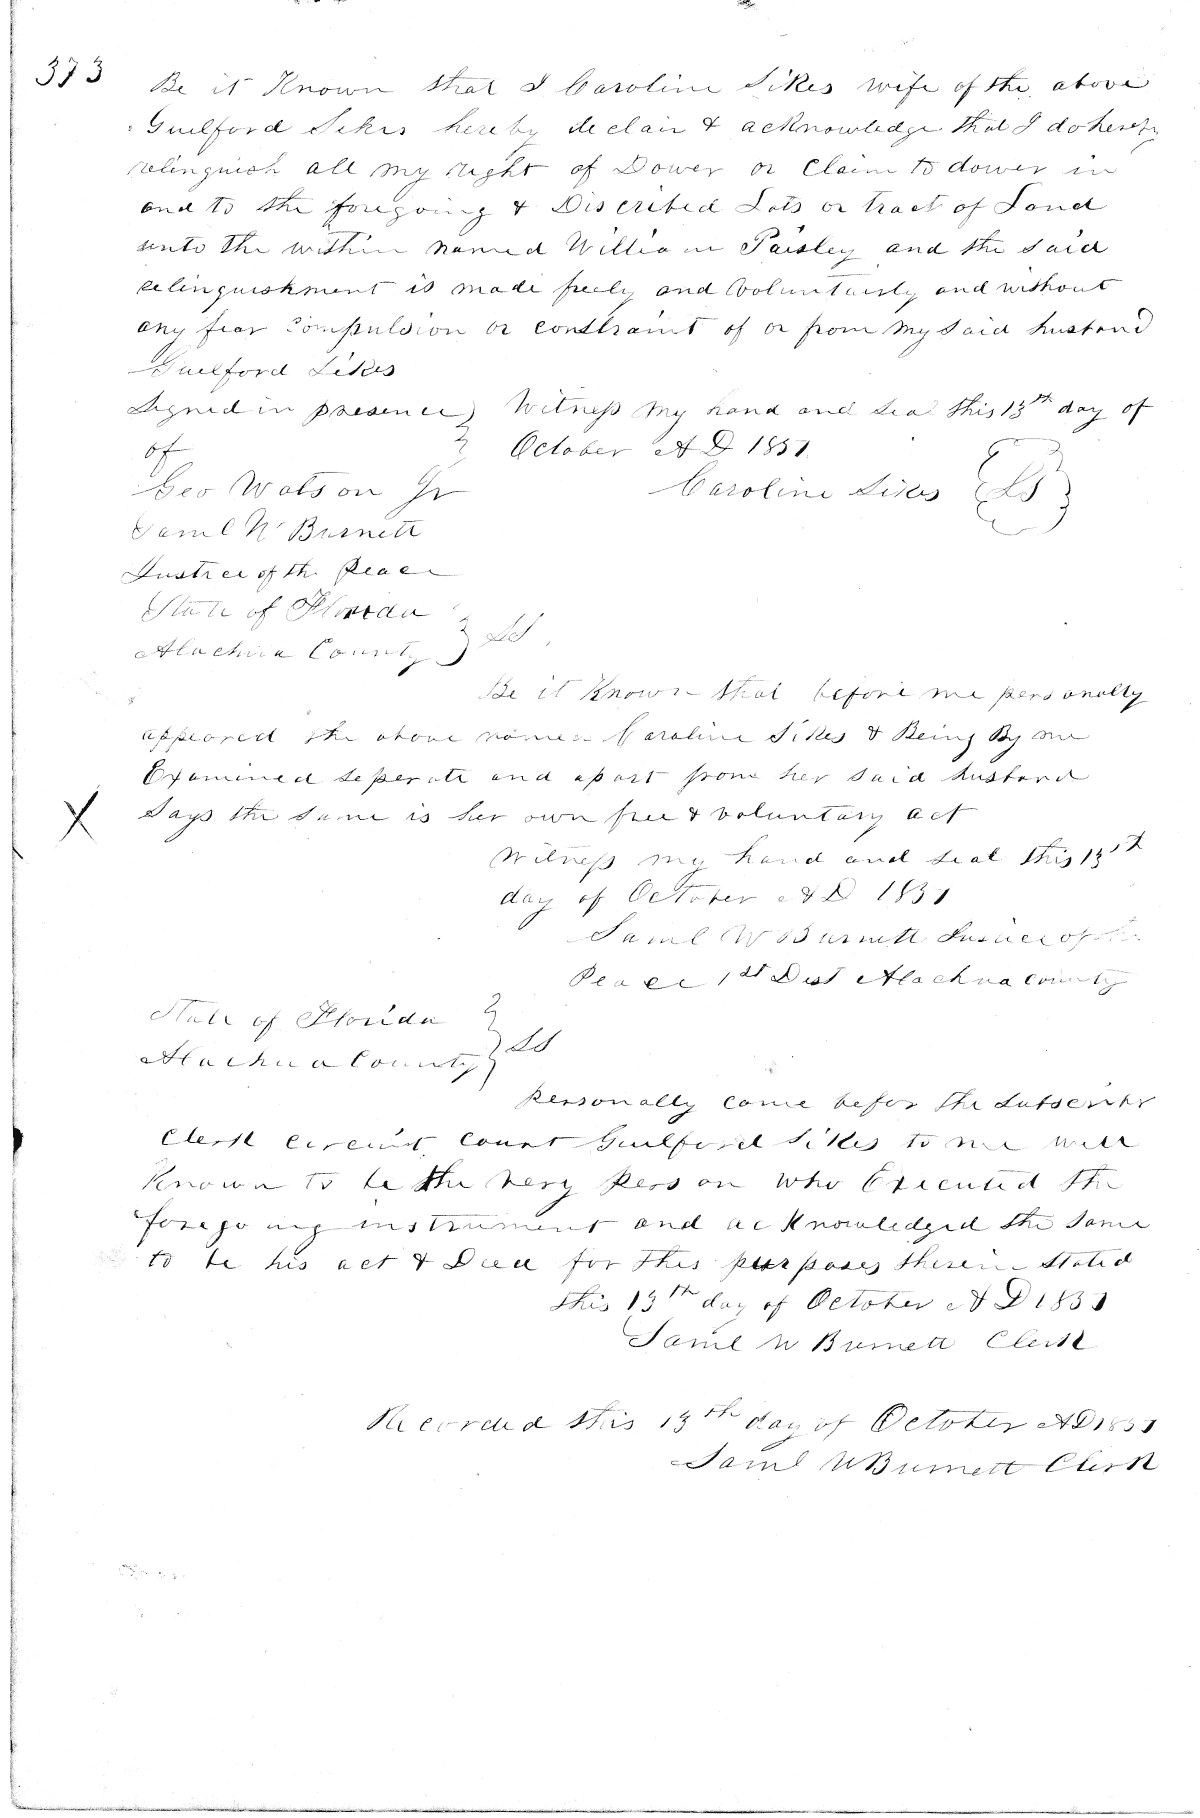 373
Be it Known that I Caroline Sikes wife of the above
Guilford Sikes hereby declair & acknowledge that I do hereby
relinguish all my right of Dower or Claim to dower in
and to the foregoing & Discribed Lots or tract of Land
unto the within named William Paisley and the said
relinguishment is made freely and Voluntairly and without
any fear Compulsion or constraint of or from my said husband
Guilford Sikes
Signed in presence Witness my hand and seal this 13th day of
of October A D 1851
Geo Watson Jr Caroline Sikes LS
Saml W Burnett
Justice of the Peace
State of Florida
Alachua County SS
Be it Known that before me personally
appeared the above named Caroline Sikes & Being By me
Examined seperate and apart from her said husband
Says the same is her own free & voluntary act
Witness my hand and seal this 13th
day of October A D 1851
Saml W Burnett Justice of the
Peace 1st Dist Alachua county
State of Florida
Alachua County SS
Personally came befor the Subscriber
Clerk circuit Court Guilford Sikes to me well
Known to be the very Person who Executed the
foregoing instrument and acknowledged the same
to be his act & Deed for the purposes therein stated
this 13th day of October A D 1851
Saml W Burnett Clerk
Recorded this 13th day of October A D 1851
Saml W Burnett Clerk